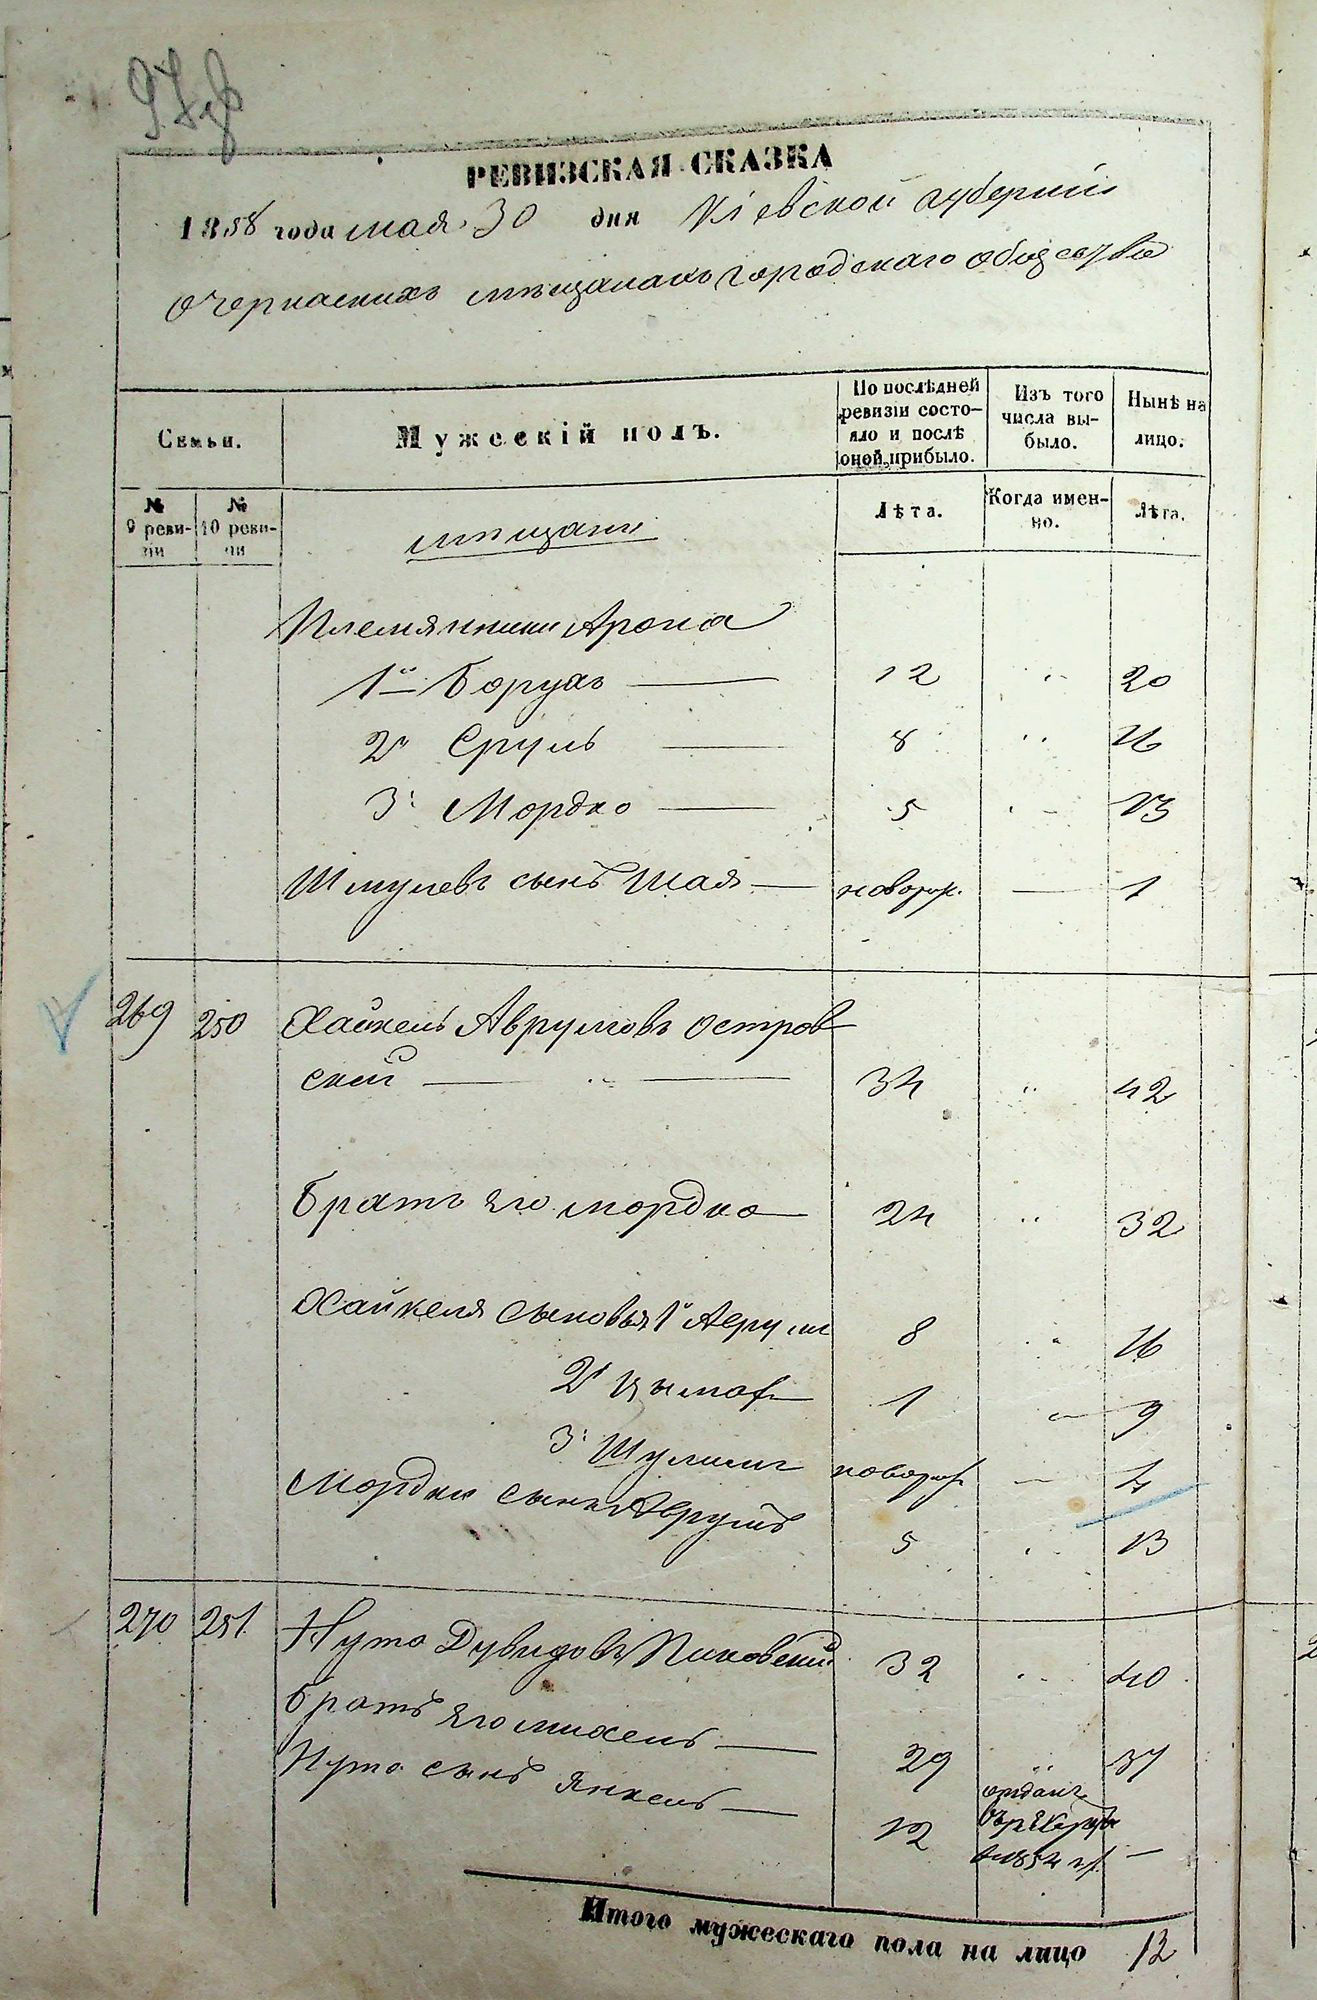 97об
РЕВИЗСКАЯ СКАЗКА
1858 года мая 30 дня Кіевской губерніи
о черкаскихъ мѣщанахъ городскаго общества
Семьи.
Мужескій полъ.
По послѣдней ревизіи состо-
яло и послѣ
оной прибыло.
Изъ того
числа вы-
было.
Нынѣ на
лицо.
№
9 реви-
зіи
№
10 реви-
зіи
мѣщане
Лѣта.
Когда имен-
но.
Лѣта.
Племянники Арона
1й Борухъ 12 20
2й Сруль 8 16
3й Мордко 5 13
Шмулевъ сынъ Шая новорож. 1
269 250 Хайкель Аврумовъ Остров
ский 34 42
Братъ его Мордко 24 32
Хайкеля сыновья 1й Аврум 8 16
2й 1 9
3й Шулимъ новорож. 4
Мордки сынъ Аврумъ 5 13
270 251 Нута Дувидовъ Пиковский 32 40
Братъ его Михель 29 37
Нута сынъ Янкель 12 отданъ
въ рекруты
въ 1854 г. —
Итого мужескаго пола на лицо 12